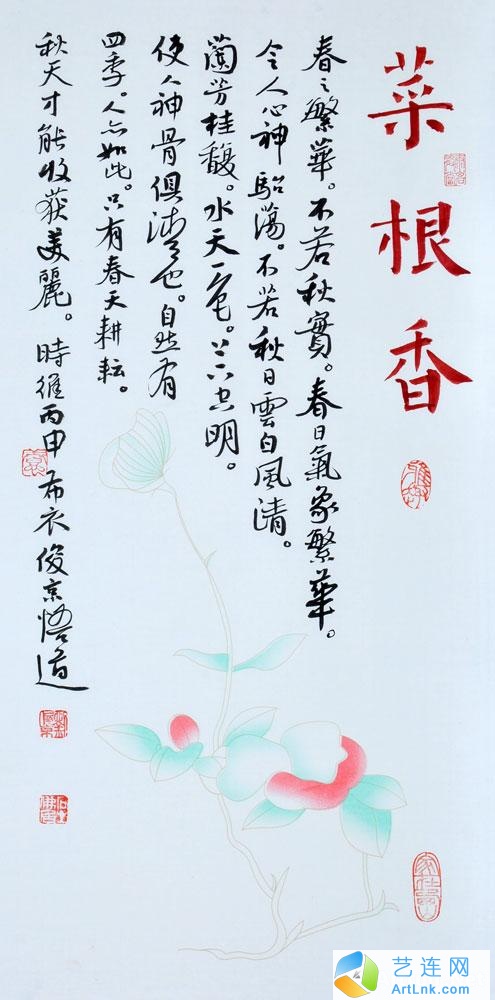 菜根香
春之繁華。不若秋實。春日氣象繁華。
令人心神駘蕩。不若秋日雲白風清。
蘭芳桂馥。水天一色。上下空明。
使人神骨俱清也。自然有
四季。人亦如此。只有春天耕耘。
秋天才能收获美麗。時維丙申布衣俊京悟道
艺连网
ArtLnk.com